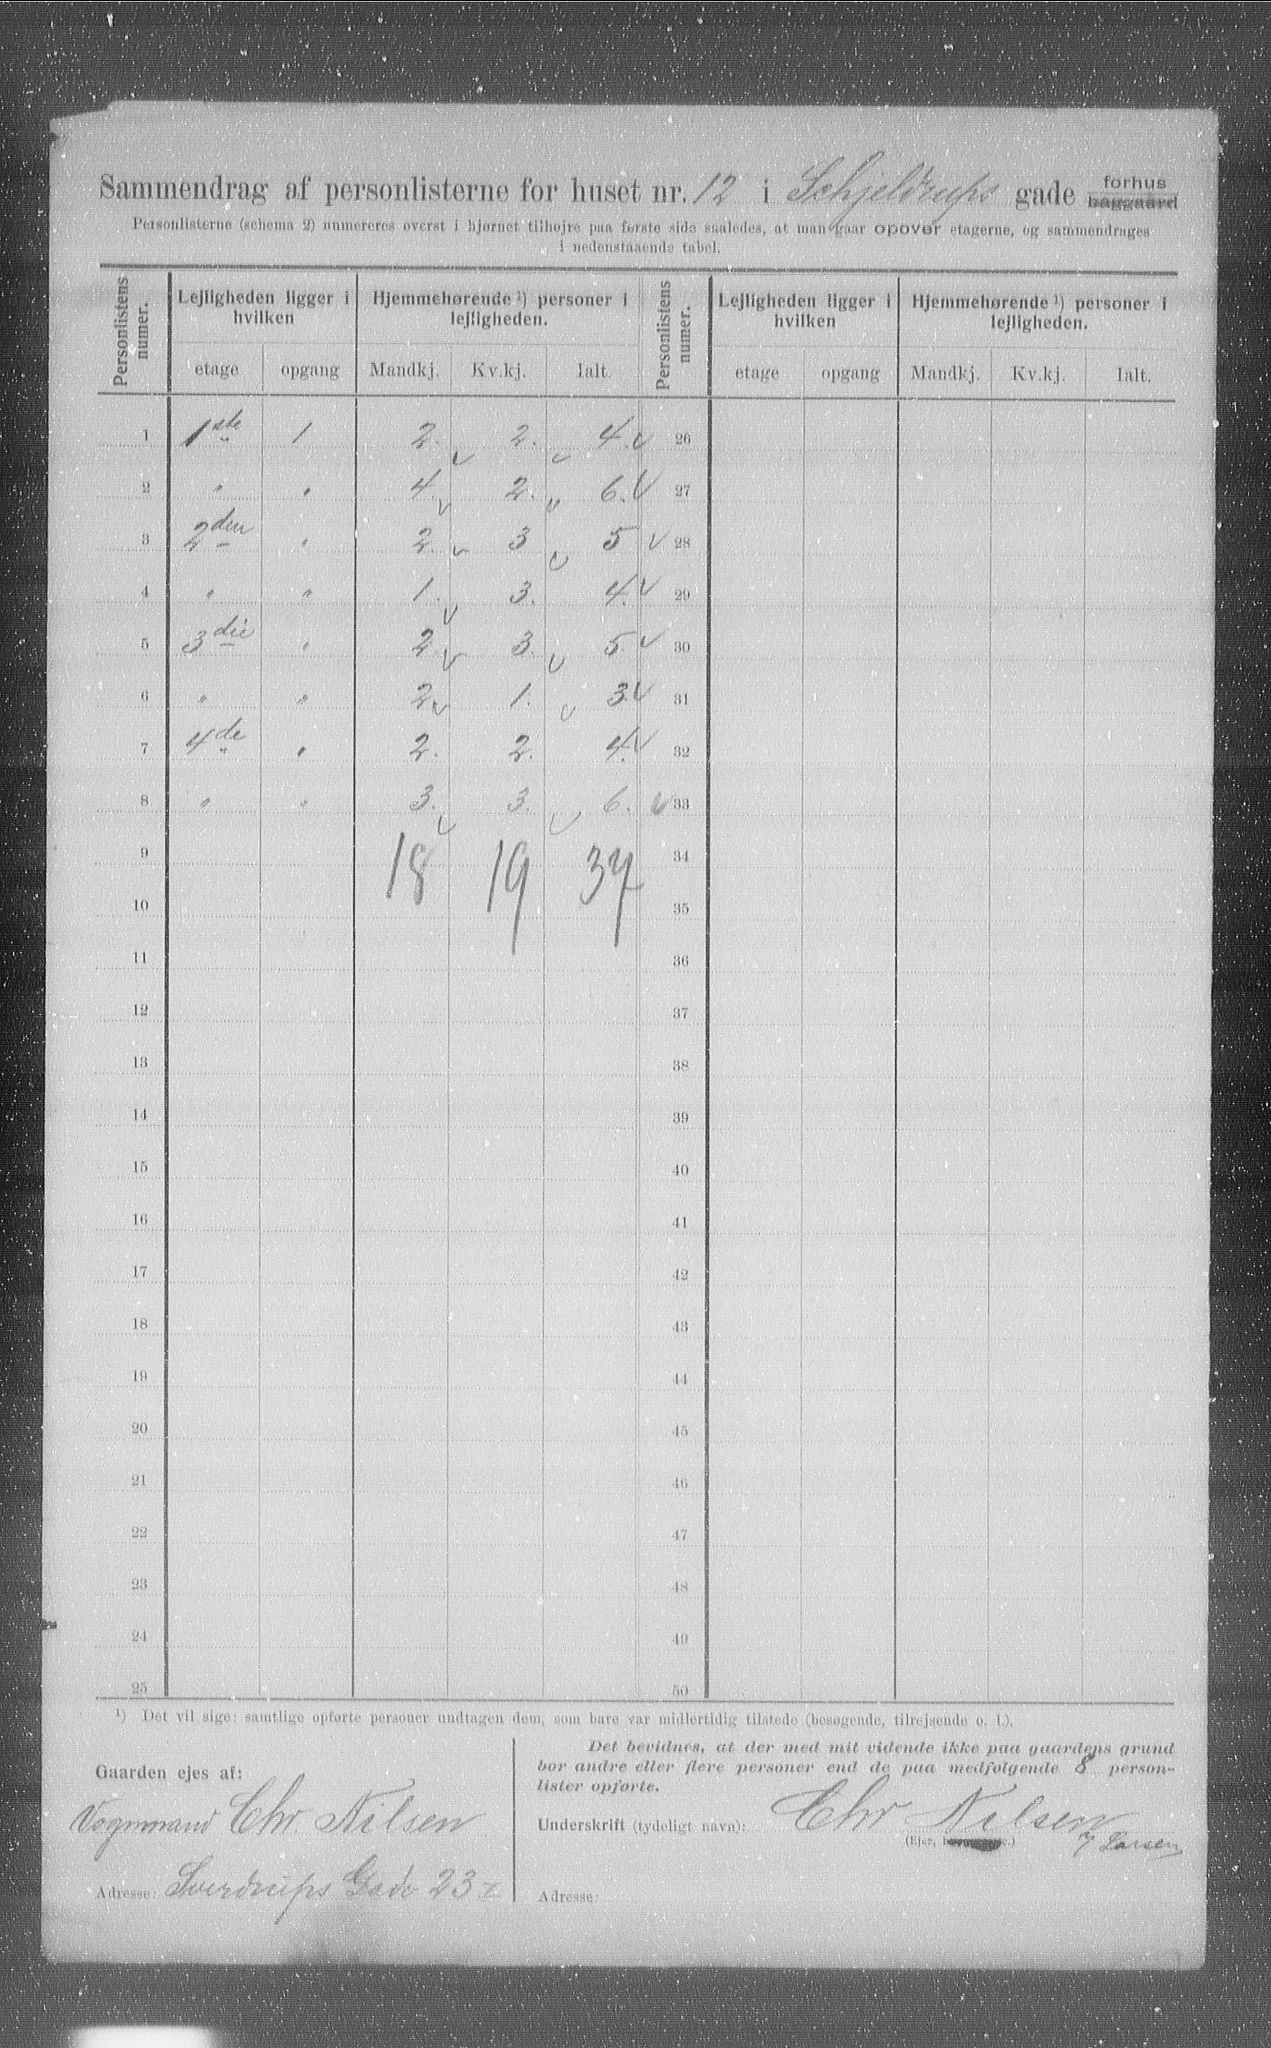 Sammendrag af personlisterne for huset nr. 12 i Schjeldrups gade forhus baggaard
Personlisterne (schema 2) numereres øverst i hjørnet tilhøjre paa første side saaledes, at man gaar opover etagerne, og sammendruges
i nedenstaaende tabel.
Personlistens numer. Lejligheden ligger i hvilken Hjemmehørende ¹) personer i lejligheden. Personlistens numer. Lejligheden ligger i hvilken Hjemmehørende ¹) personer i lejligheden.
etage opgang Mandkj. Kv.kj. Ialt. etage opgang Mandkj. Kv.kj. Ialt.
1 1ste 1 2. 2. 4. 26
2 " " 4. 2. 6. 27
3 2den " 2. 3 5 28
4 " " 1. 3. 4. 29
5 3die " 2 3. 5. 30
6 " " 2 1. 3 31
7 4de " 2. 2. 4. 32
8 " " 3. 3. 6. 33
9 18 19 37 34
10 35
11 36
12 37
13 38
14 39
15 40
16 41
17 42
18 43
19 44
20 45
21 46
22 47
23 48
24 49
25 50
¹) Det vil sige: samtlige opførte personer undtagen dem, som bare var midlertidig tilstede (besøgende, tilrejsende o. l.).
Gaarden ejes af:
Vognmand Chr. Nilsen
Adresse: Sverdrups Gade 23
Det bevidnes, at der med mit vidende ikke paa gaardens grund
bor andre eller flere personer end de paa medfølgende 8 person-
lister opførte.
Underskrift (tydeligt navn): Chr Nilsen
(Ejer, Larsen
Adresse: